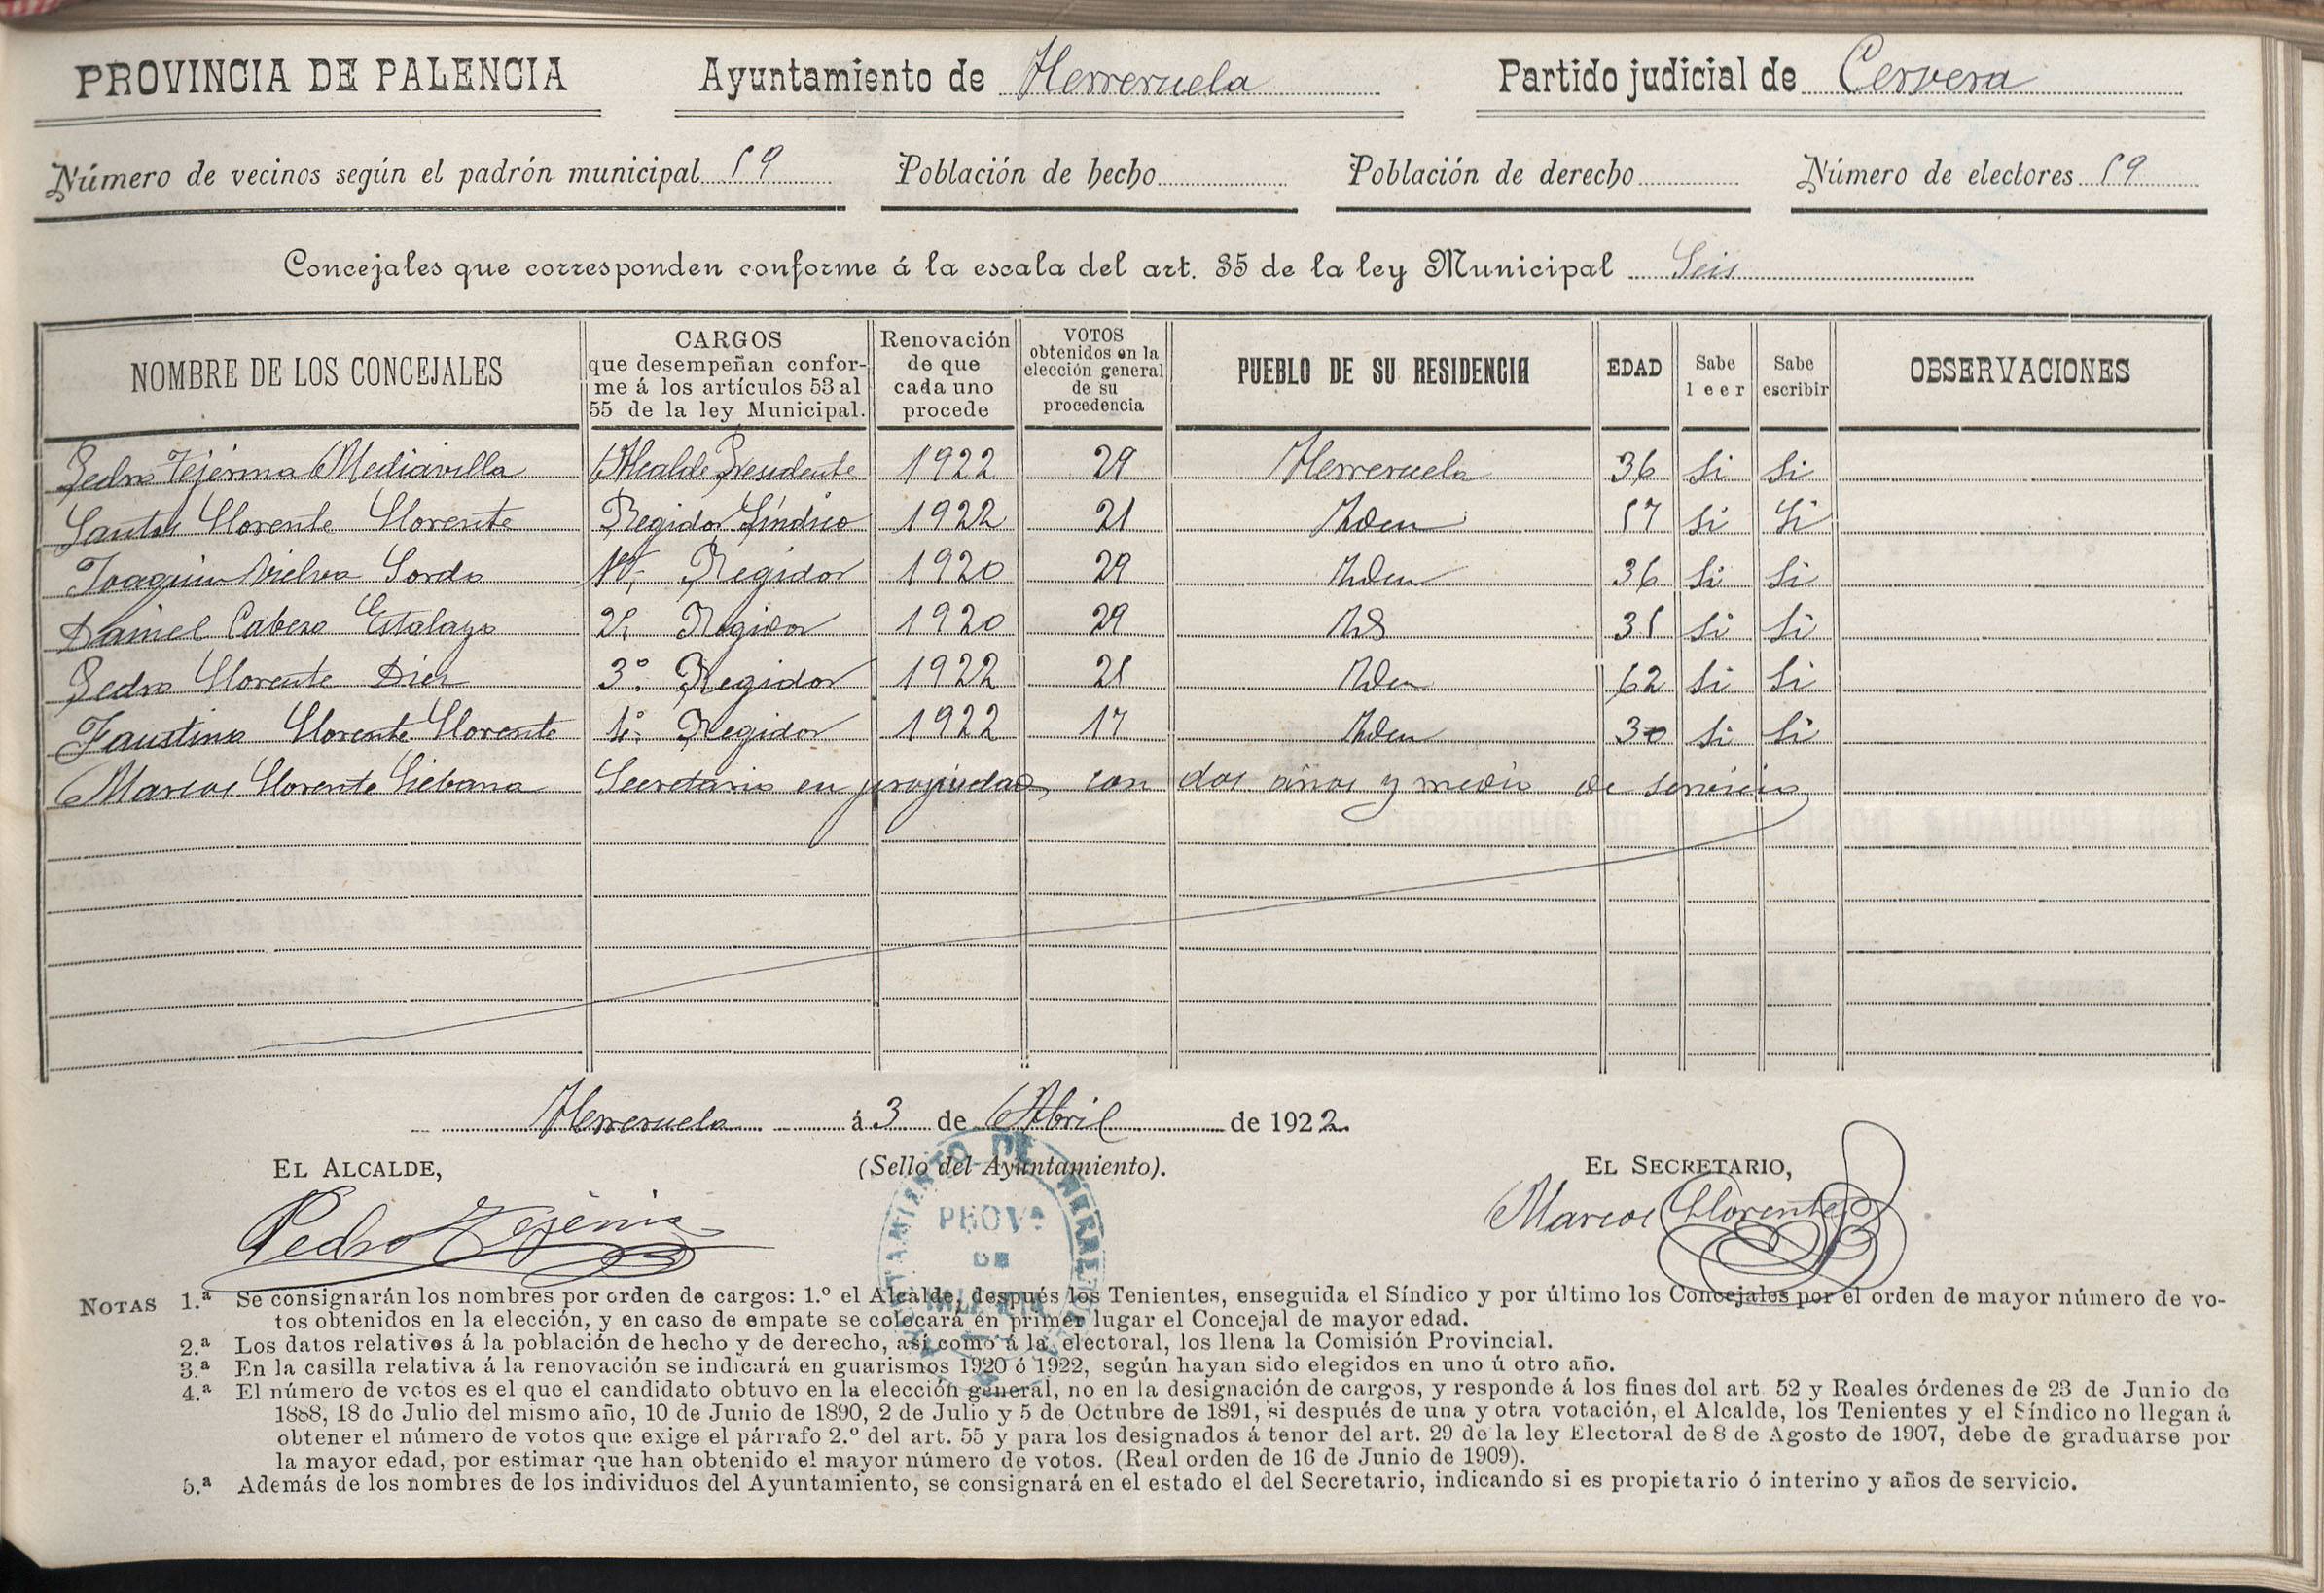 PROVINCIA DE PALENCIA Ayuntamiento de Herreruela Partido judicial de Cervera
Número de vecinos según el padrón municipal 59 Población de hecho Población de derecho Número de electores 59
Concejales que corresponden conforme á la escala del art. 35 de la ley Municipal Seis
NOMBRE DE LOS CONCEJALES CARGOS que desempeñan conforme á los artículos 53 al 55 de la ley Municipal. Renovación de que cada uno procede VOTOS obtenidos en la elección general de su procedencia PUEBLO DE SU RESIDENCIA EDAD Sabe leer Sabe escribir OBSERVACIONES
Pedro Tejerina Mediavilla Alcalde Presidente 1922 29 Herreruela 36 Si Si
Santos Llorente Llorente Regidor Síndico 1922 21 Idem 57 Si Si
Joaquin Vielva Sordo 1º. Regidor 1920 29 Idem 36 Si Si
Daniel Cabezo Estalayo 2º. Regidor 1920 29 Id 35 Si Si
Pedro Llorente Diez 3º. Regidor 1922 21 Idem 62 Si Si
Faustino Llorente Llorente 4º. Regidor 1922 17 Idem 30 Si Si
Marcos Llorente Liébana Secretario en propiedad, con dos años y medio de servicio
Herreruela á 3 de Abril de 1922.
EL ALCALDE, (Sello del Ayuntamiento). EL SECRETARIO,
Pedro Tejerina Marcos Llorente
AYUNTAMIENTO DE HERRERUELA
PROVª
DE
PALENCIA
NOTAS 1.ª Se consignarán los nombres por orden de cargos: 1.º el Alcalde, después los Tenientes, enseguida el Síndico y por último los Concejales por el orden de mayor número de vo-
tos obtenidos en la elección, y en caso de empate se colocará en primer lugar el Concejal de mayor edad.
2.ª Los datos relativos á la población de hecho y de derecho, así como á la electoral, los llena la Comisión Provincial.
3.ª En la casilla relativa á la renovación se indicará en guarismos 1920 ó 1922, según hayan sido elegidos en uno ú otro año.
4.ª El número de votos es el que el candidato obtuvo en la elección general, no en la designación de cargos, y responde á los fines del art. 52 y Reales órdenes de 23 de Junio de
1888, 18 de Julio del mismo año, 10 de Junio de 1890, 2 de Julio y 5 de Octubre de 1891, si después de una y otra votación, el Alcalde, los Tenientes y el Síndico no llegan á
obtener el número de votos que exige el párrafo 2.º del art. 55 y para los designados á tenor del art. 29 de la ley Electoral de 8 de Agosto de 1907, debe de graduarse por
la mayor edad, por estimar que han obtenido el mayor número de votos. (Real orden de 16 de Junio de 1909).
5.ª Además de los nombres de los individuos del Ayuntamiento, se consignará en el estado el del Secretario, indicando si es propietario ó interino y años de servicio.